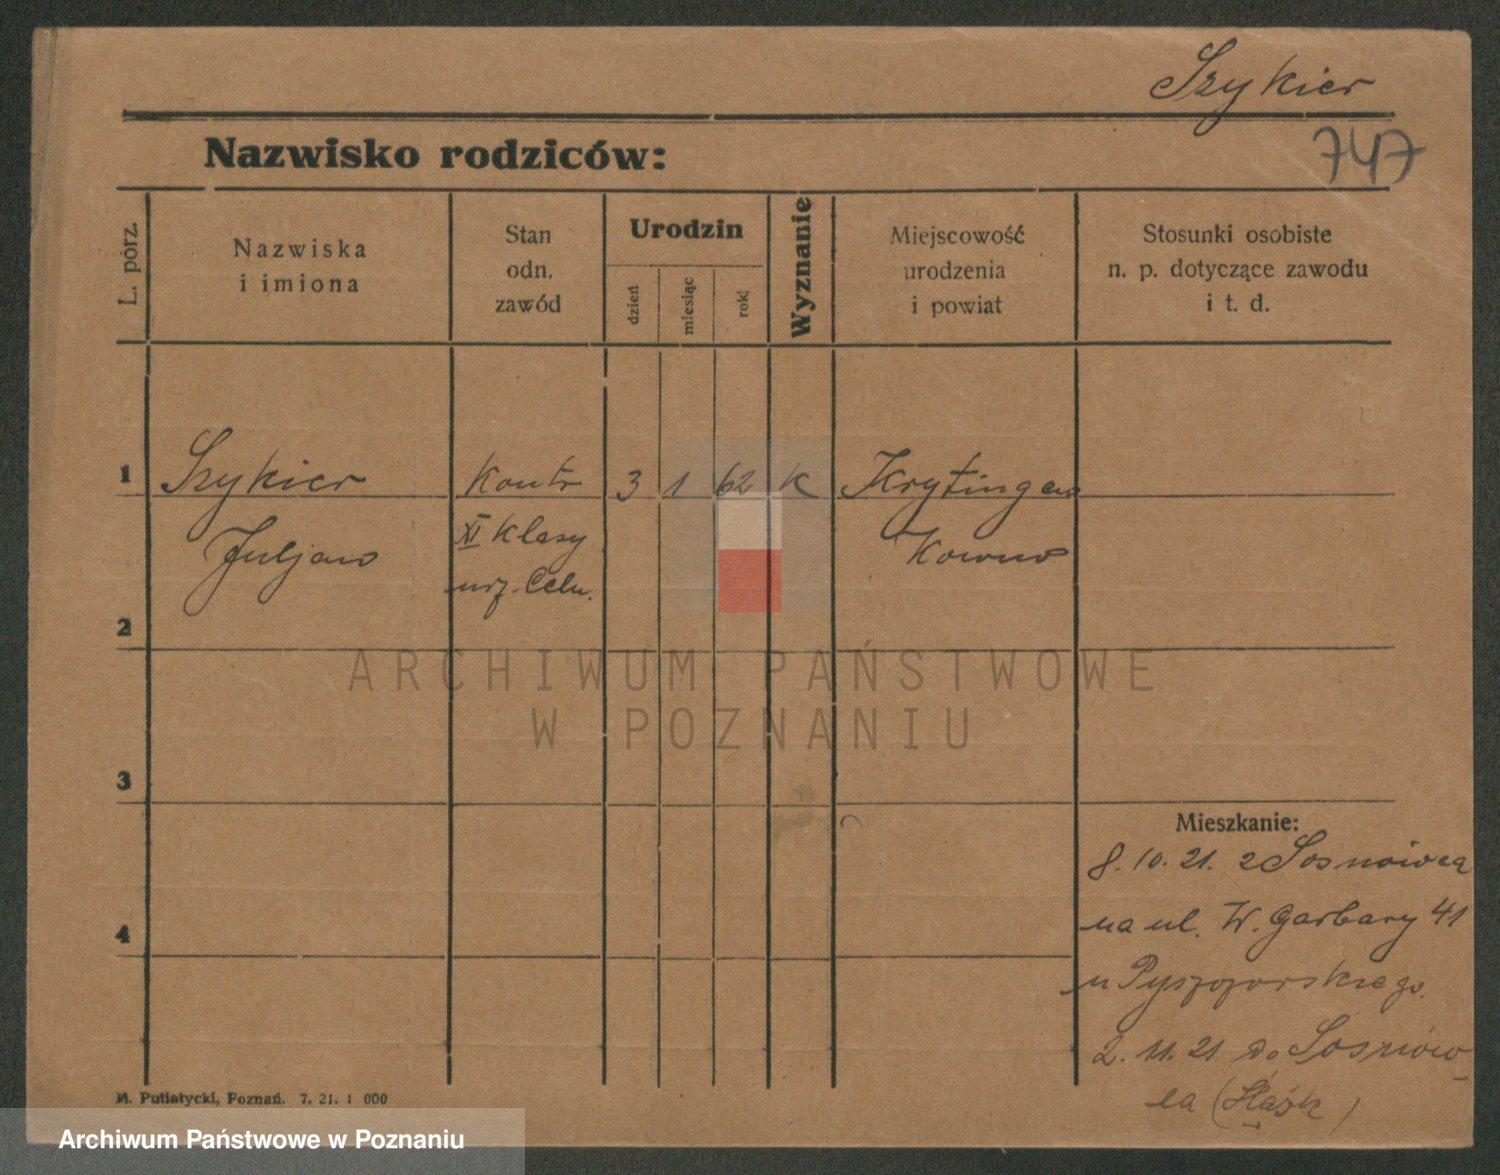 Szykier
747
Nazwisko rodziców:
L. porz.
Nazwiska
i imiona
Stan
odn.
zawód
Urodzin
dzień
miesiąc
rok
Wyznanie
Miejscowość
urodzenia
i powiat
Stosunki osobiste
n. p. dotyczące zawodu
i t. d.
1
Szykier
Kontr
3 1 62 K
Krytingen
Juljan
XI Klasy
urz. Celn.
Kowno
2
3
4
Mieszkanie:
8. 10. 21. z Sosnowca
na ul. W. Garbary 41
u
2. 11. 21 do Sosnow-
ca (Śląsk)
M. Putiatycki, Poznań. 7. 21. 1 000
ARCHIWUM PAŃSTWOWE
W POZNANIU
Archiwum Państwowe w Poznaniu